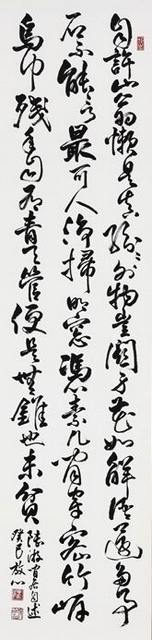 自許山翁懶是真紛紛外物豈關身花如解語還多事
石不能言最可人淨掃明窗憑素几閒穿密竹岸
烏巾殘年自有青天管便是無錐也未貧
陸游閒居自述
癸巳